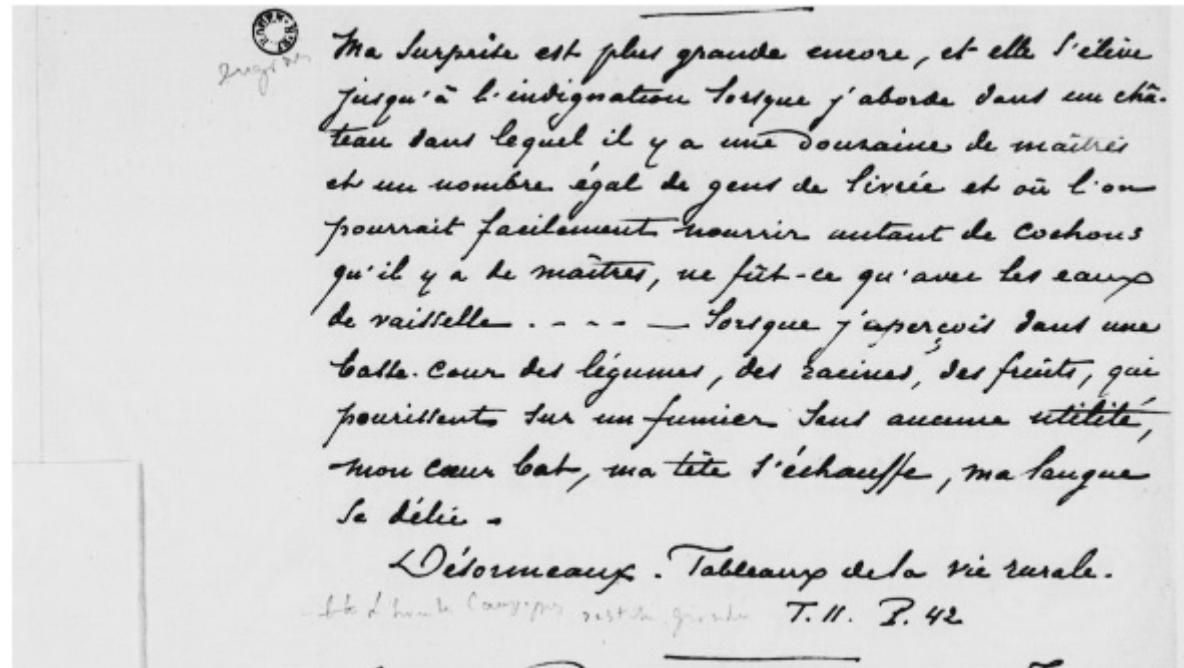 Ma surprise est plus grande encore, et elle s'élève
jusqu'à l'indignation lorsque j'aborde dans un châ-
teau dans lequel il y a une douzaine de maîtres
et un nombre égal de gens de livrée et où l'on
pourrait facilement nourrir autant de cochons
qu'il y a de maîtres, ne fût-ce qu'avec les eaux
de vaisselle . - - - — lorsque j'aperçois dans une
basse-cour des légumes, des racines, des fruits, qui
pourissent sur un fumier sans aucune utilité,
mon cœur bat, ma tête s'échauffe, ma langue
se délie -
Désormeaux. Tableaux de la vie rurale.
T. II. P. 42